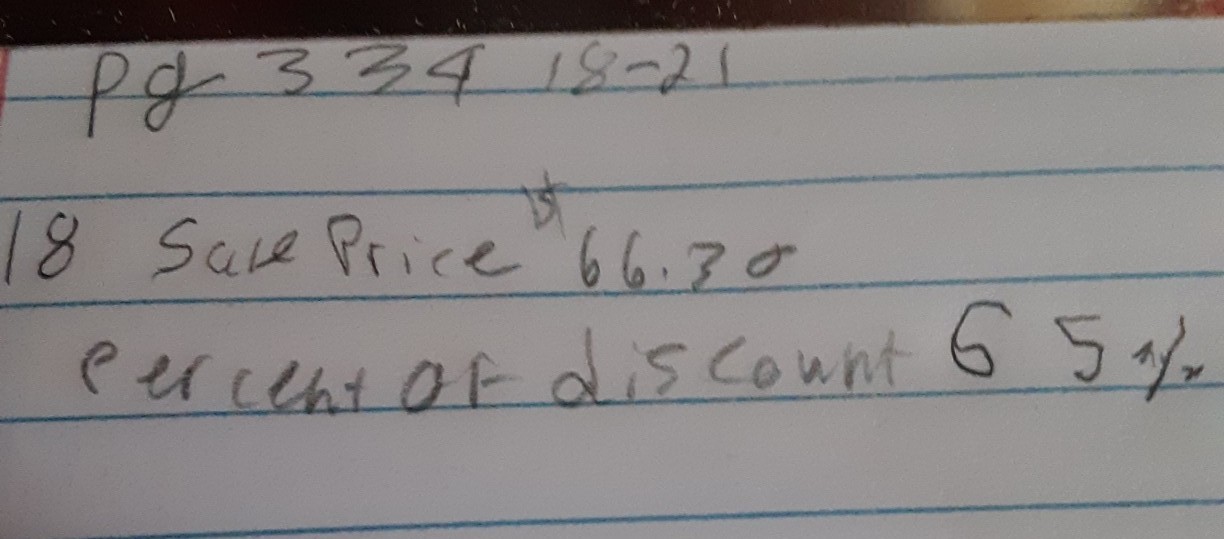 pg 334 18-21
18 Sale Price $66.30
Percent of discount 65%